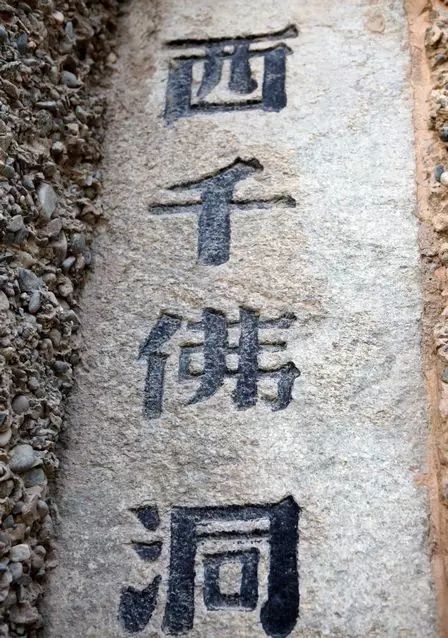 西千佛洞